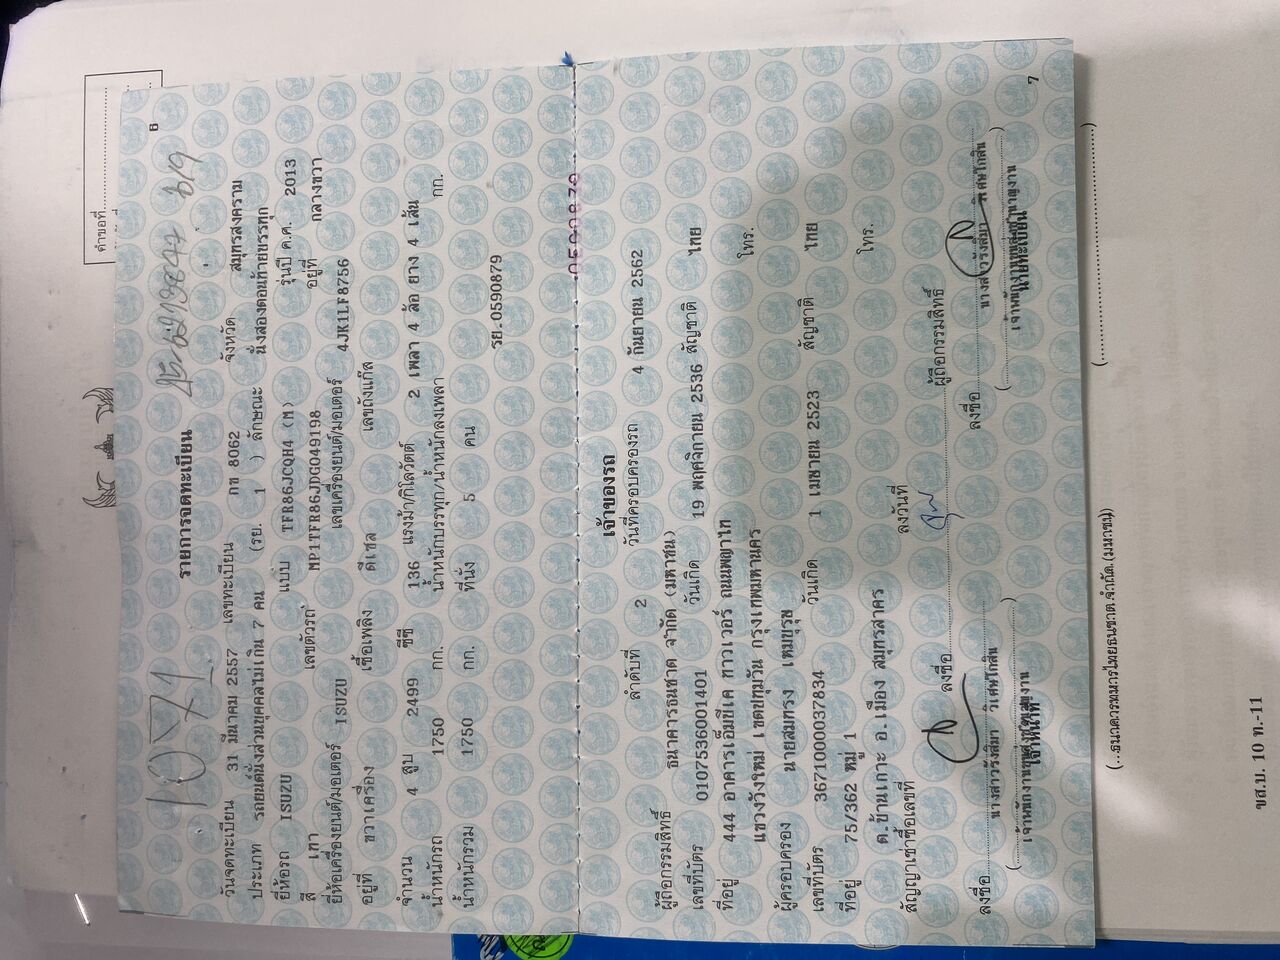 คำขอที่
6
1071
รายการจดทะเบียน
วันจดทะเบียน 31 มีนาคม 2557 เลขทะเบียน กข 8062 จังหวัด สมุทรสงคราม
ประเภท รถยนต์นั่งส่วนบุคคลไม่เกิน 7 คน (รย. 1 ) ลักษณะ นั่งสองตอนท้ายบรรทุก
ยี่ห้อรถ ISUZU แบบ TFR86JCQH4 (M) รุ่นปี ค.ศ. 2013
สี เทา เลขตัวรถ MP1TFR86JDG049198 อยู่ที่ กลางขวา
ยี่ห้อเครื่องยนต์/มอเตอร์ ISUZU เลขเครื่องยนต์/มอเตอร์ 4JK1LF8756
อยู่ที่ ขวาเครื่อง เชื้อเพลิง ดีเซล เลขถังแก๊ส
จำนวน 4 สูบ 2499 ซีซี 136 แรงม้า/กิโลวัตต์ 2 เพลา 4 ล้อ ยาง 4 เส้น
น้ำหนักรถ 1750 กก. น้ำหนักบรรทุก/น้ำหนักลงเพลา กก.
น้ำหนักรวม 1750 กก. ที่นั่ง 5 คน
รย.0590879
เจ้าของรถ
ลำดับที่ 2 วันที่ครอบครองรถ 4 กันยายน 2562
ผู้ถือกรรมสิทธิ์ ธนาคารธนชาต จำกัด (มหาชน)
เลขที่บัตร 0107536001401 วันเกิด 19 พฤศจิกายน 2536 สัญชาติ ไทย
ที่อยู่ 444 อาคารเอ็มบีเค ทาวเวอร์ ถนนพญาไท โทร.
แขวงวังใหม่ เขตปทุมวัน กรุงเทพมหานคร
ผู้ครอบครอง นายสมทรง เหมบุรุษ
เลขที่บัตร 3671000037834 วันเกิด 1 เมษายน 2523 สัญชาติ ไทย
ที่อยู่ 75/362 หมู่ 1 โทร.
ต.บ้านเกาะ อ.เมือง สมุทรสาคร
สัญญาเช่าซื้อเลขที่ ลงวันที่
ลงชื่อ ผู้ถือกรรมสิทธิ์
ลงชื่อ ลงชื่อ
เจ้าหน้าที่ นายทะเบียน
7
(..ธนาคารทหารไทยธนชาต.จำกัด.(มหาชน) )
ขส.บ. 10 ท.-11